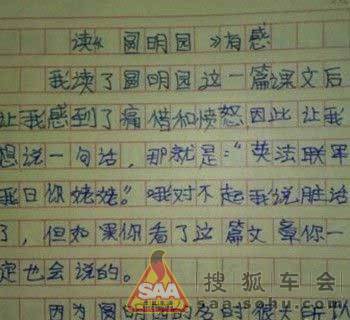 读《圆明园》有感
我读了圆明园这一篇课文后
让我感到了痛惜和愤怒,因此让我
想说一句话,那就是:“英法联军
我日你姥姥。”哦对不起我说脏话
了,但如果你看了这篇文章你一
定也会说的。
因为圆明园的名时很大所以
SAA
搜狐车会
saa.auto.sohu.com